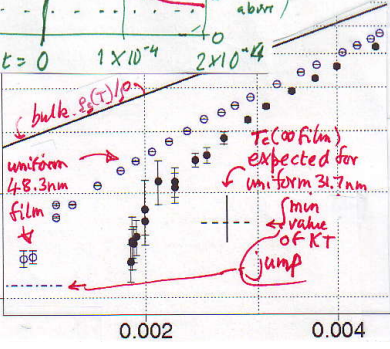 above)
0
t = 0
1 X 10⁻⁴
2X10⁻⁴
bulk ρs(T)/ρ
uniform
48.3nm
film
Tc(∞ film)
expected for
uniform 31.7nm
min
value
of KT
jump
0.002
0.004